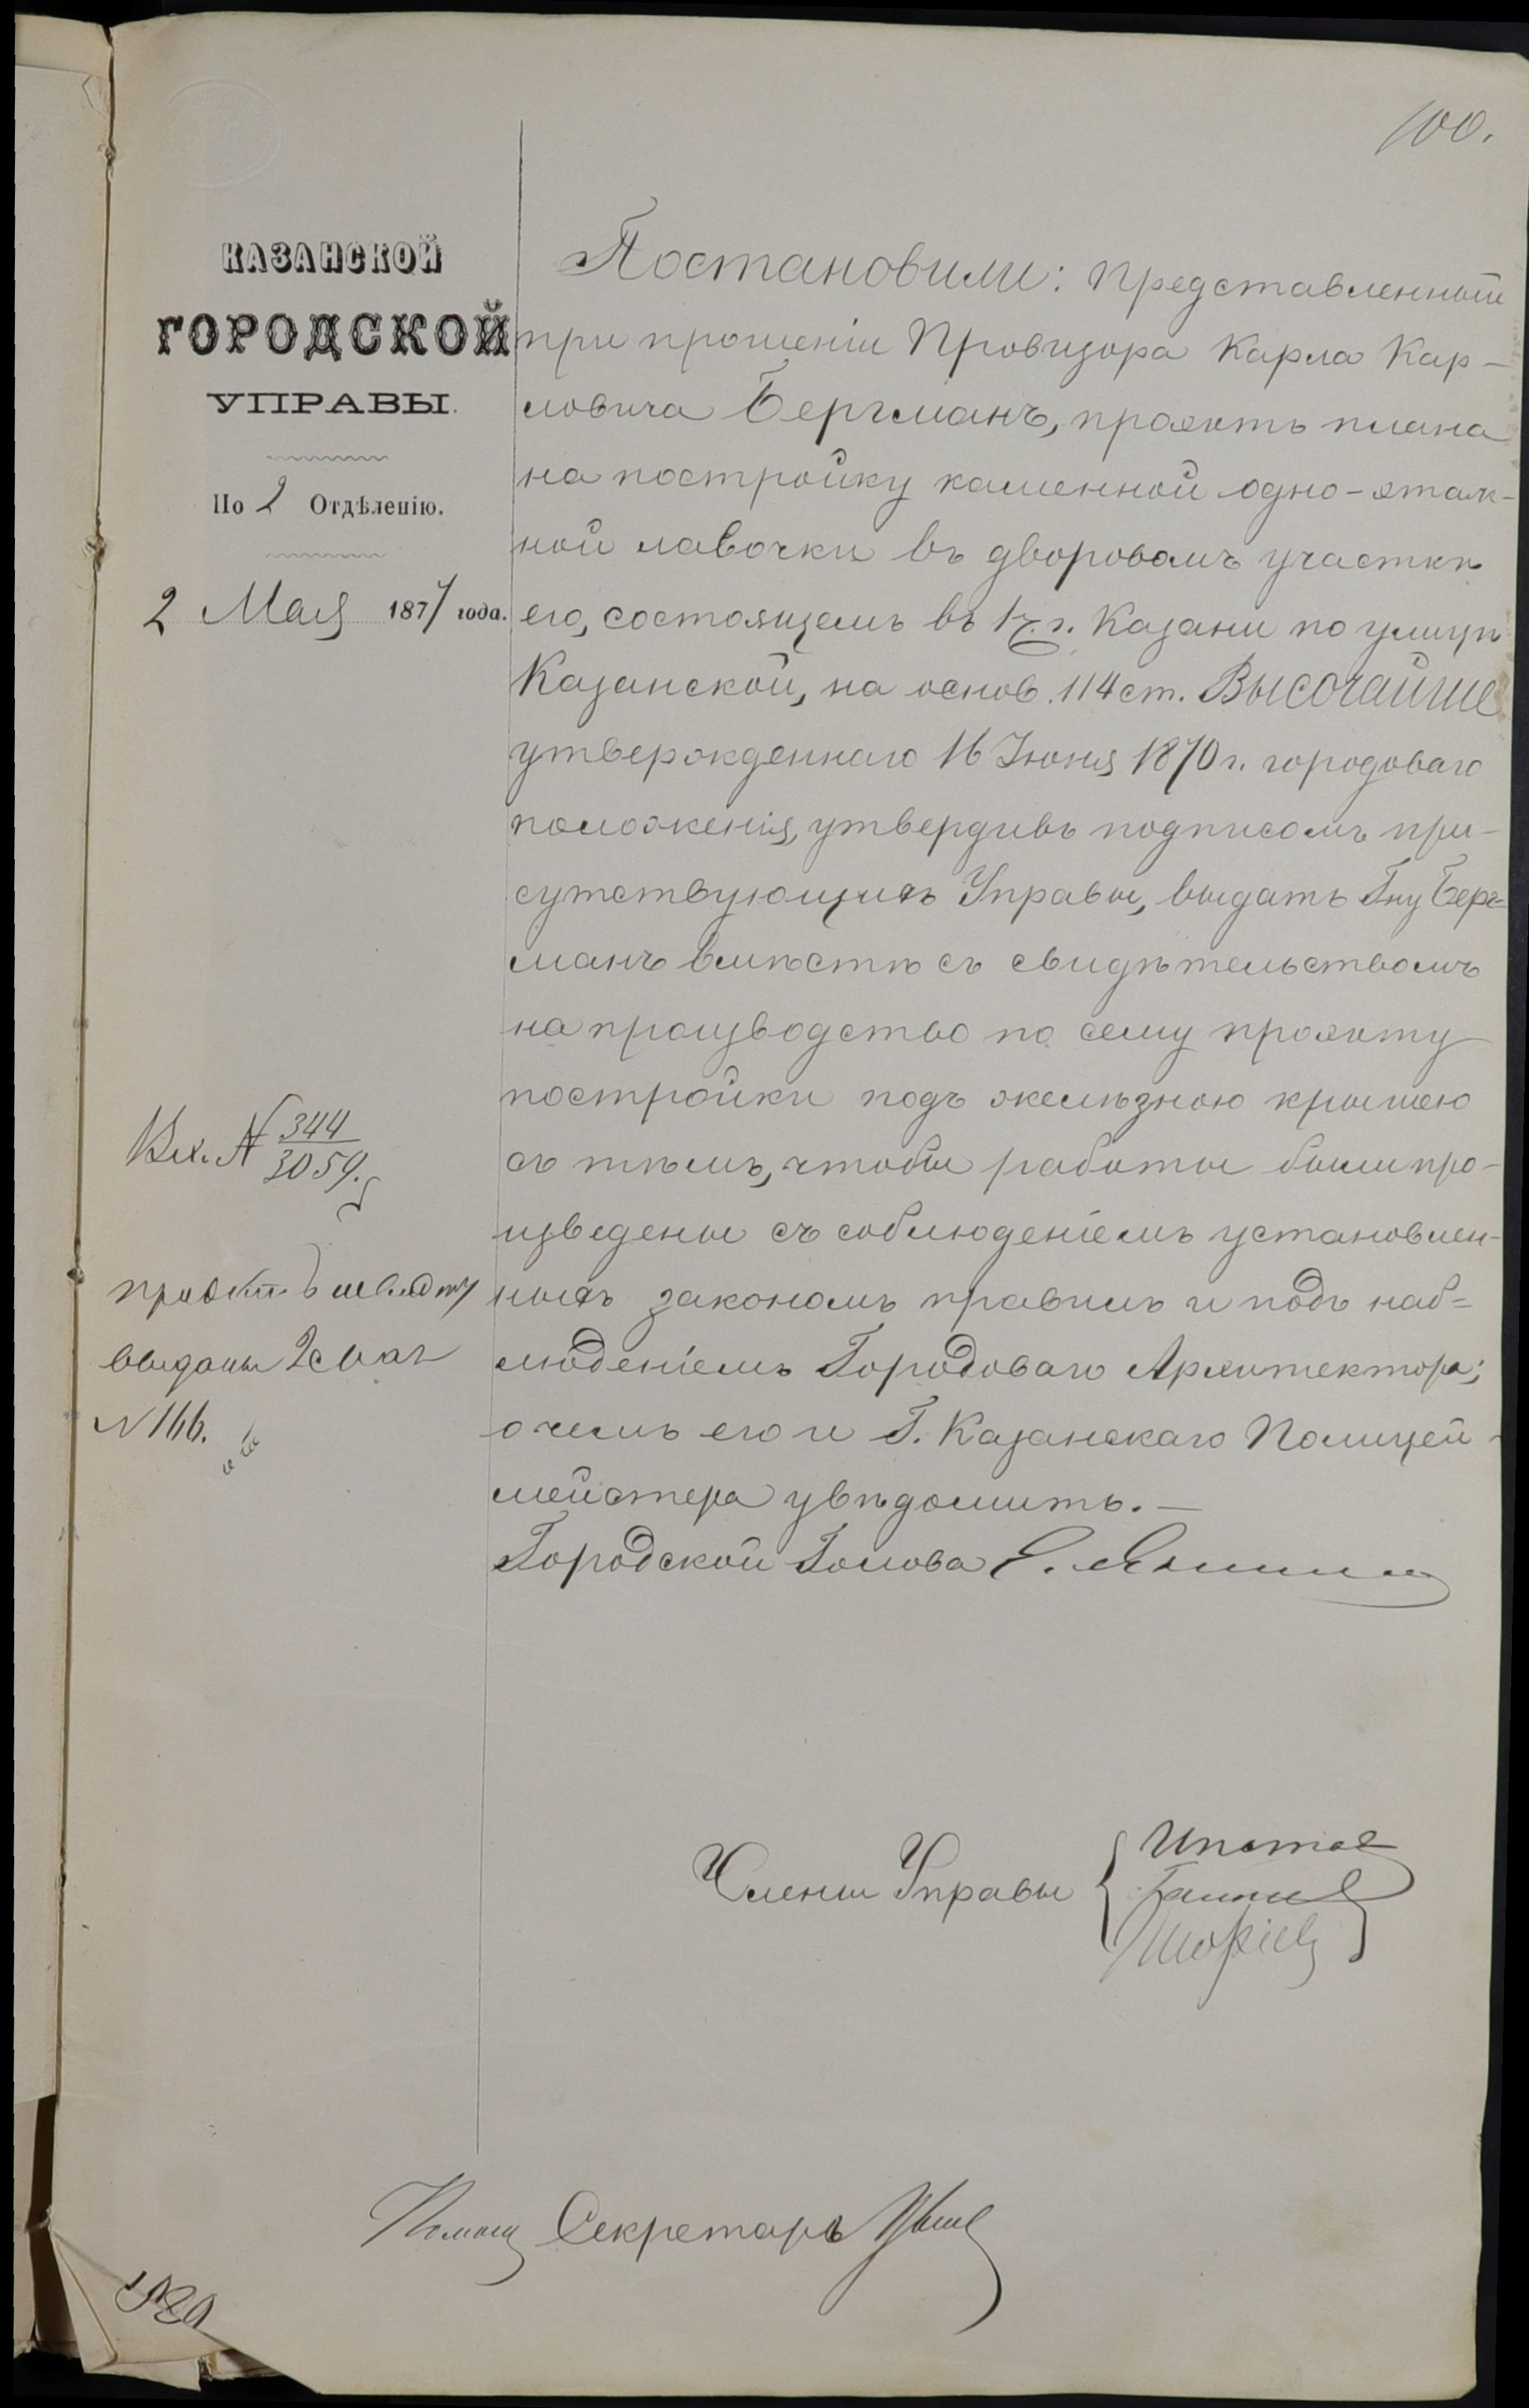 100.
КАЗАНСКОЙ
ГОРОДСКОЙ
УПРАВЫ.
По 2 Отдѣленію.
2 Мая 1877 года.
Вх. № 344
3059.
проэктъ
выданы 2 мая
№ 166.
Постановили: Представленный
при прошеніи Провизора Карла Кар-
ловича Бергманъ, проэктъ плана
на постройку каменной одно-этаж-
ной лавочки въ дворовомъ участкѣ
его, состоящемъ въ 1 ч. г. Казани по улицѣ
Казанской, на основ. 114 ст. ВЫСОЧАЙШЕ
утвержденнаго 16 Іюня 1870 г. городоваго
положенія, утвердивъ подписомъ при-
сутствующихъ Управы, выдать Г-ну Берг-
манъ вмѣстѣ съ свидѣтельствомъ
на производство по сему проэкту
постройки подъ желѣзною крышею
съ тѣмъ, чтобы работы были про-
изведены съ соблюденіемъ установлен-
ныхъ закономъ правилъ и подъ наб-
люденіемъ Городоваго Архитектора;
о чемъ его и Г. Казанскаго Полицей-
мейстера увѣдомить. —
Городской Голова Е. Янишевскій
Члены Управы
Помощ Секретаря